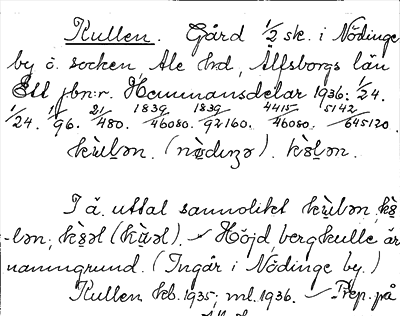 Kullen. Gård 1/2 sk. i Nödinge
by o. socken Ale hd, Älfsborgs län
Ett jbn:r. Hemmansdelar 1936: 1/24.
1/24. 1/96. 21/480. 1839/46080. 1839/92160. 4415/46080. 5142/645120.
(nödinge).
I ä. uttal sannolikt
Höjd, bergkulle är
namngrund. (Ingår i Nödinge by.)
Kullen kb. 1935; ml. 1936. Prep. på